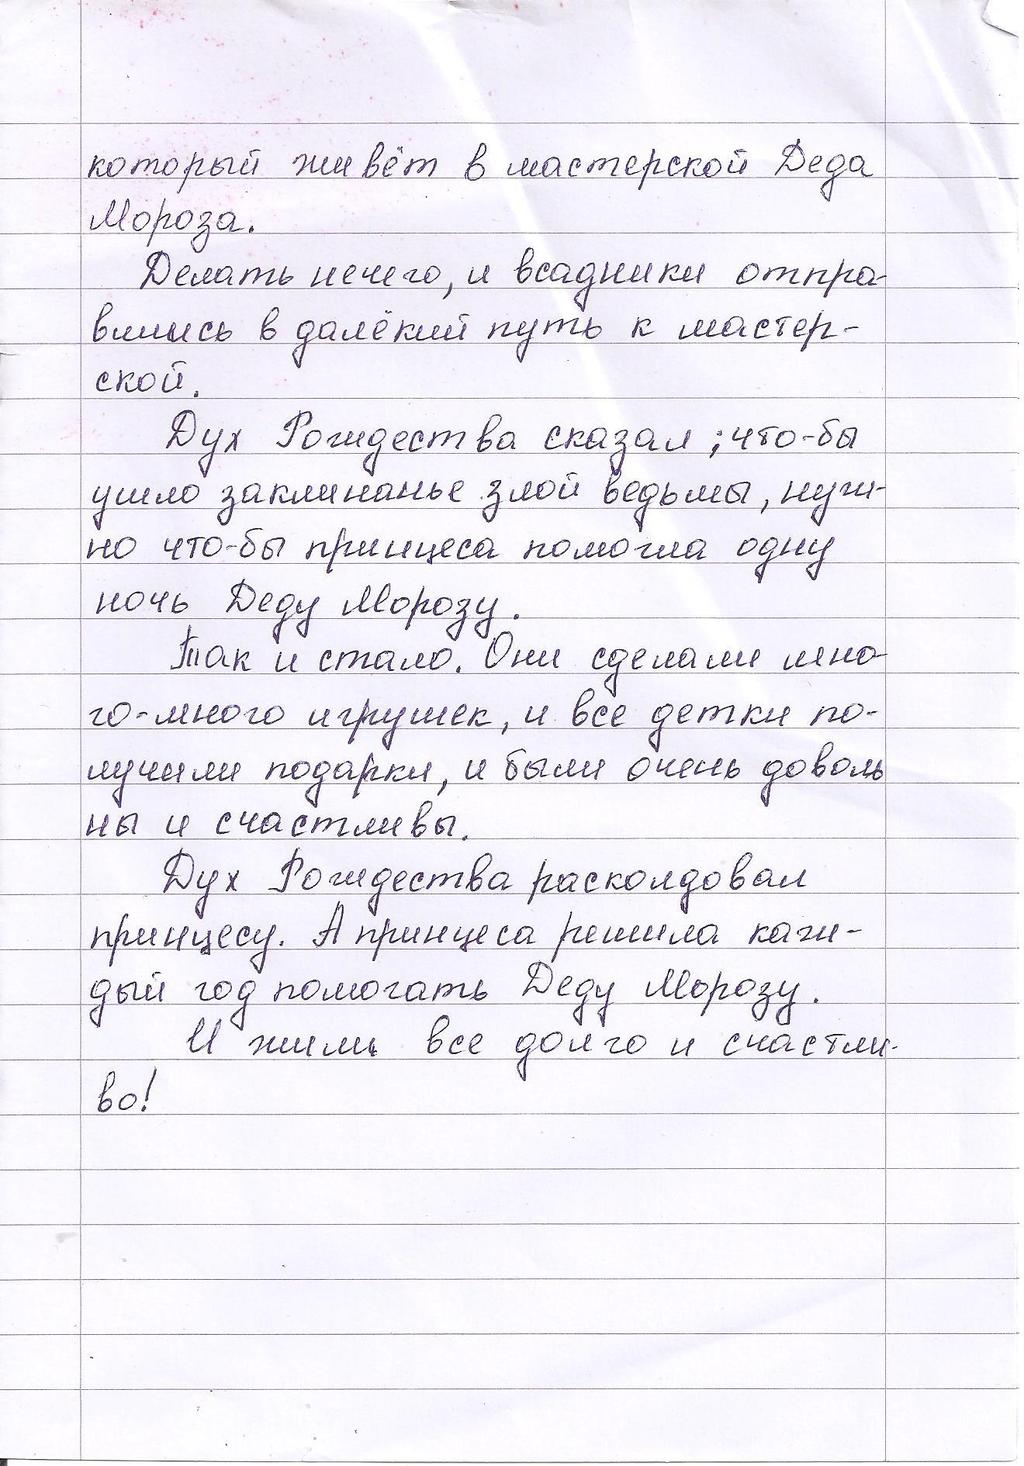 который живёт в мастерской Деда
Мороза.
Делать нечего, и всадники отпра-
вились в далёкий путь к мастер-
ской.
Дух Рождества сказал ; что-бы
ушло заклинанье злой ведьмы, нуж-
но что-бы принцеса помогла одну
ночь Деду Морозу.
Так и стало. Они сделали мно-
го-много игрушек, и все детки по-
лучили подарки, и были очень доволь
ны и счастливы.
Дух Рождества расколдовал
принцесу. А принцеса решила каж-
дый год помогать Деду Морозу.
И жили все долго и счастли-
во!